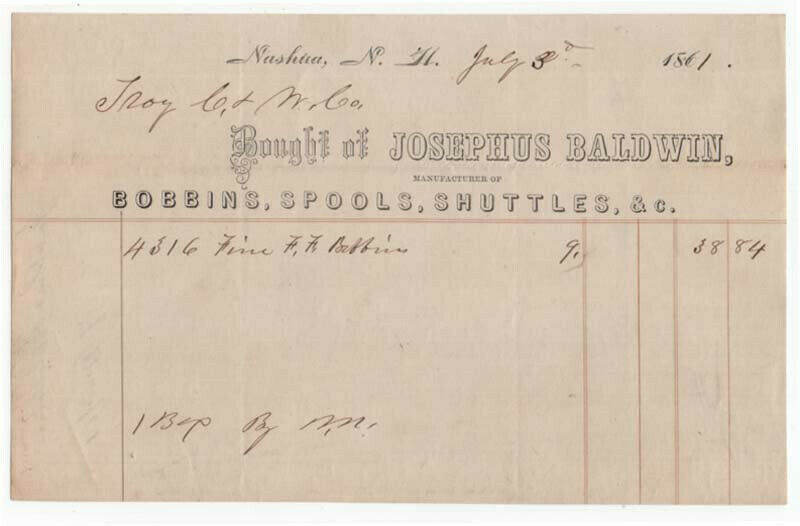 Nashua, N. H. July 3d 1861.
Troy C. & W. Co.
Bought of JOSEPHUS BALDWIN,
MANUFACTURER OF
BOBBINS, SPOOLS, SHUTTLES, & c.
4316 Fine F. F. Bobbins 9. 38 84
1 Box By